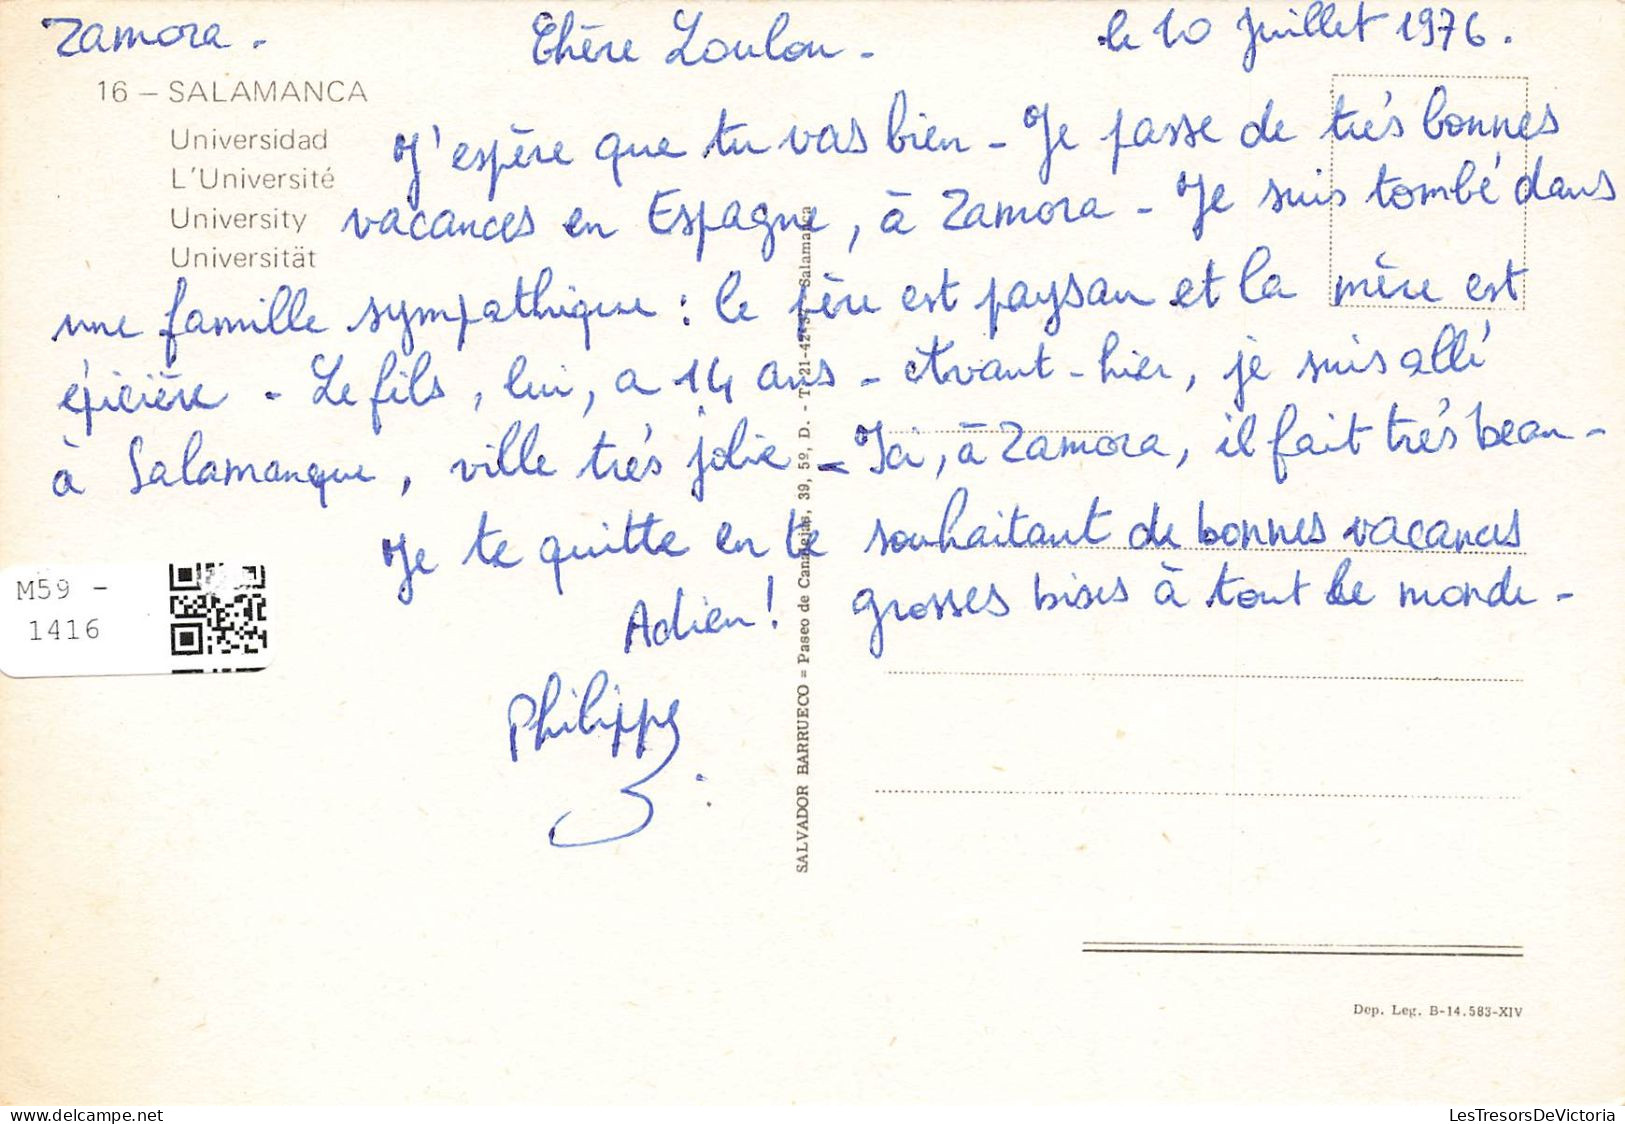 Zamora - Chère Loulou - le 10 Juillet 1976.
16 – SALAMANCA
Universidad
L'Université
University
Universität
J'espère que tu vas bien - Je passe de très bonnes
vacances en Espagne, à Zamora - Je suis tombé dans
une famille sympathique : le père est paysan et la mère est
épicière - Le fils, lui, a 14 ans - Avant-hier, je suis allé
à Salamanque, ville très jolie - Ici, à Zamora, il fait très beau -
Je te quitte en te souhaitant de bonnes vacances
Adieu! grosses bises à tout le monde -
Philippe
M59 -
1416
SALVADOR BARRUECO = Paseo de Canalejas, 39, 5º, D. - Salamanca
Dep. Leg. B-14.583-XIV
delcampe.net
LesTresorsDeVictoria